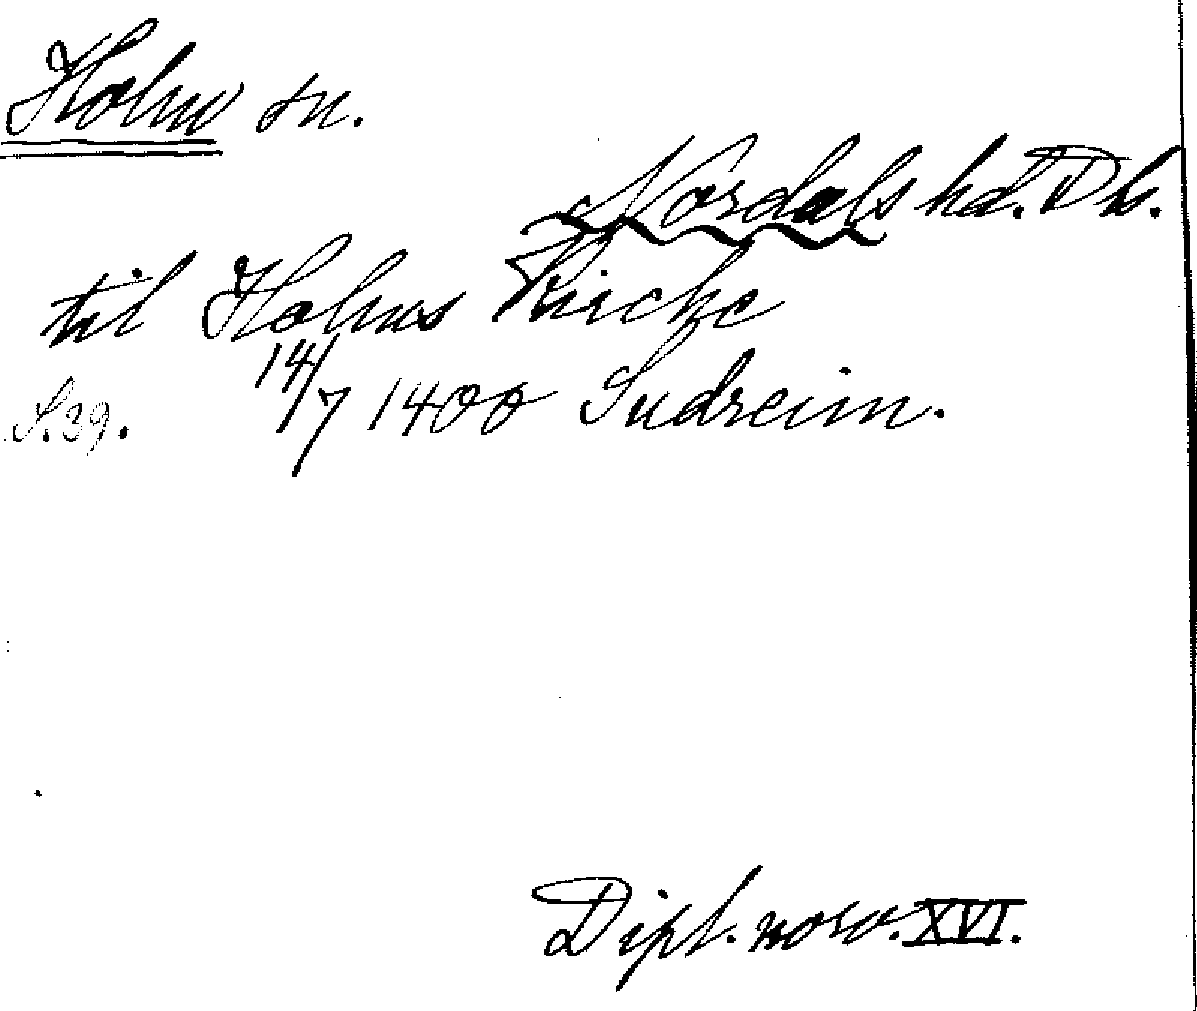 Holm sn.
Nordals hd. Db.
til Holms Kirche
S. 39. 14/7 1400 Sudreim.
Dipl. norv. XVI.